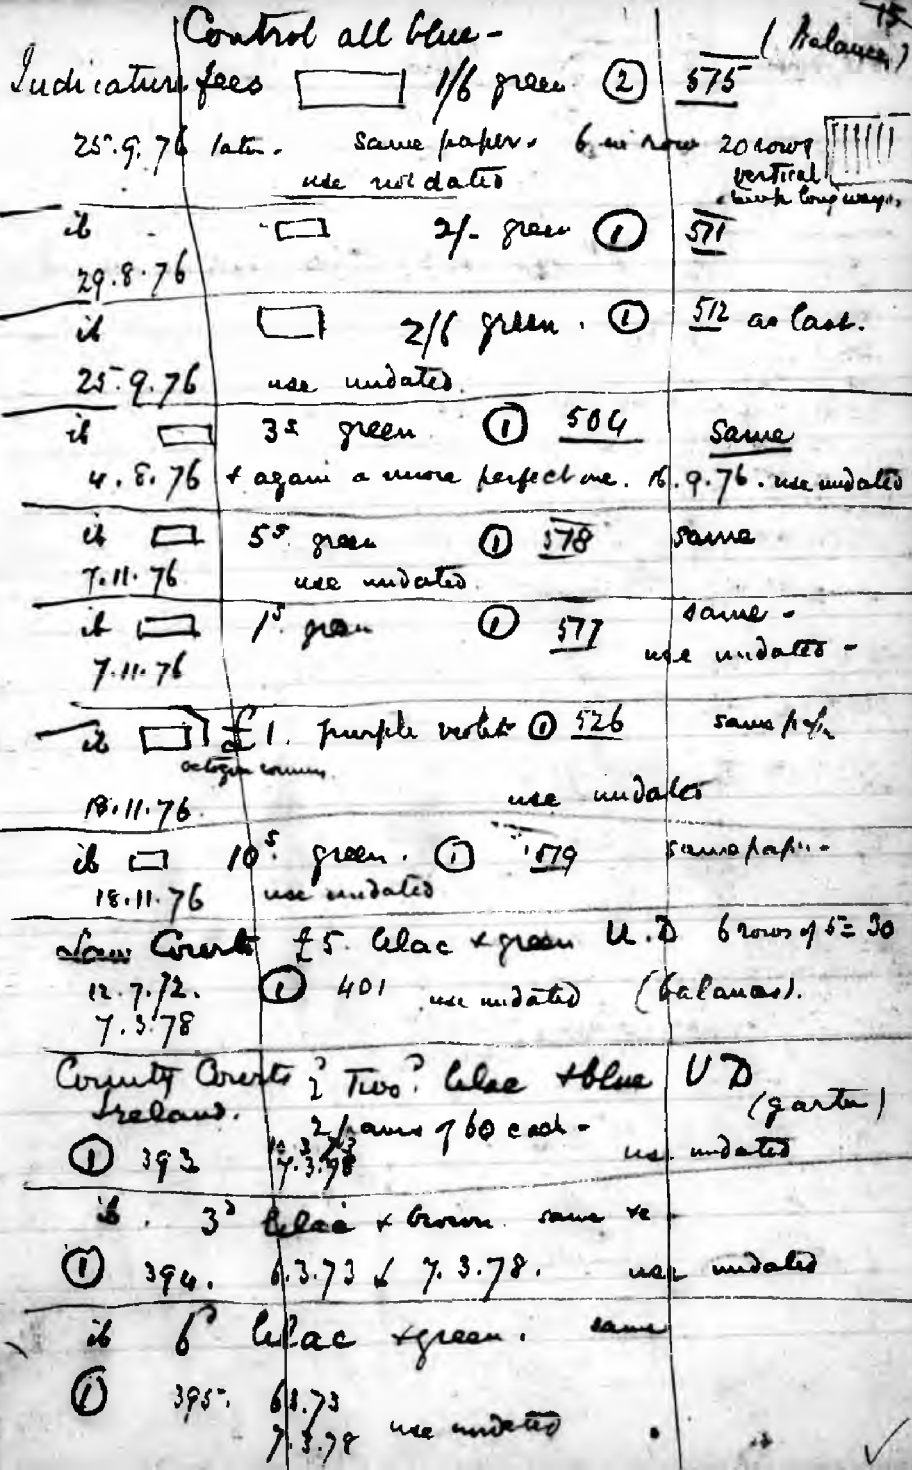 15
Control all blue -
(Balances)
Judicature fees 1/6 green (2) 575
25.9.76 later. same paper. 6 in row 20 rows
vertical
use not dated
long ways.
ib 2/- green (1) 571
29.8.76
ib 2/6 green. (1) 512 as last.
25.9.76 use undated.
ib 3s green (1) 504 same
4.8.76 + again a more perfect one. 16.9.76. use undated
ib 5s green (1) 578 same
7.11.76 use undated.
ib 1s green (1) 577 same -
use undated -
7.11.76
ib £1. purple violet (1) 526 same pap.
octagon
18.11.76. use undated
ib 10s. green. (1) 579 same pap. -
18.11.76 use undated
Law Courts £5. lilac + green U.D 6 rows of 5 = 30
12.7.72. (1) 401 use undated (balances).
7.3.78
County Courts ? Two? lilac + blue U D
Ireland. (garter)
2 panes of 60 each -
(1) 393 7.3.78 use undated
ib. 3d lilac + brown. same
(1) 394. 6.3.73 & 7.3.78. use undated
ib 6d lilac + green. same
(1) 395. 6.3.73
7.3.78 use undated